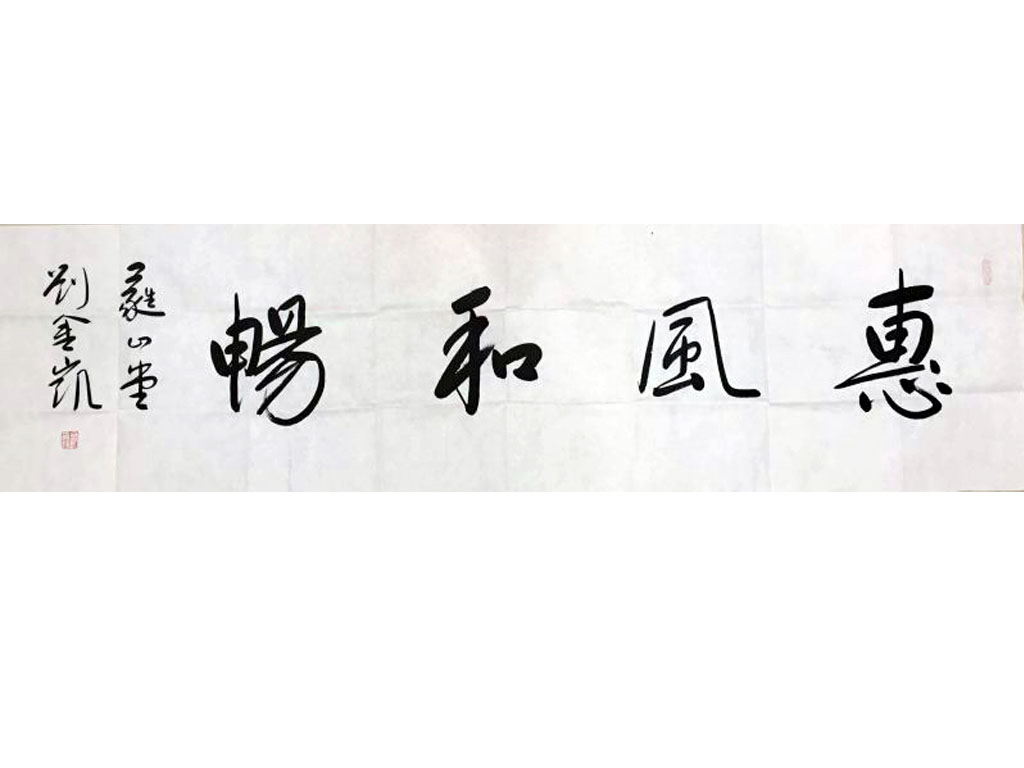 惠風和暢
山堂
劉金凱